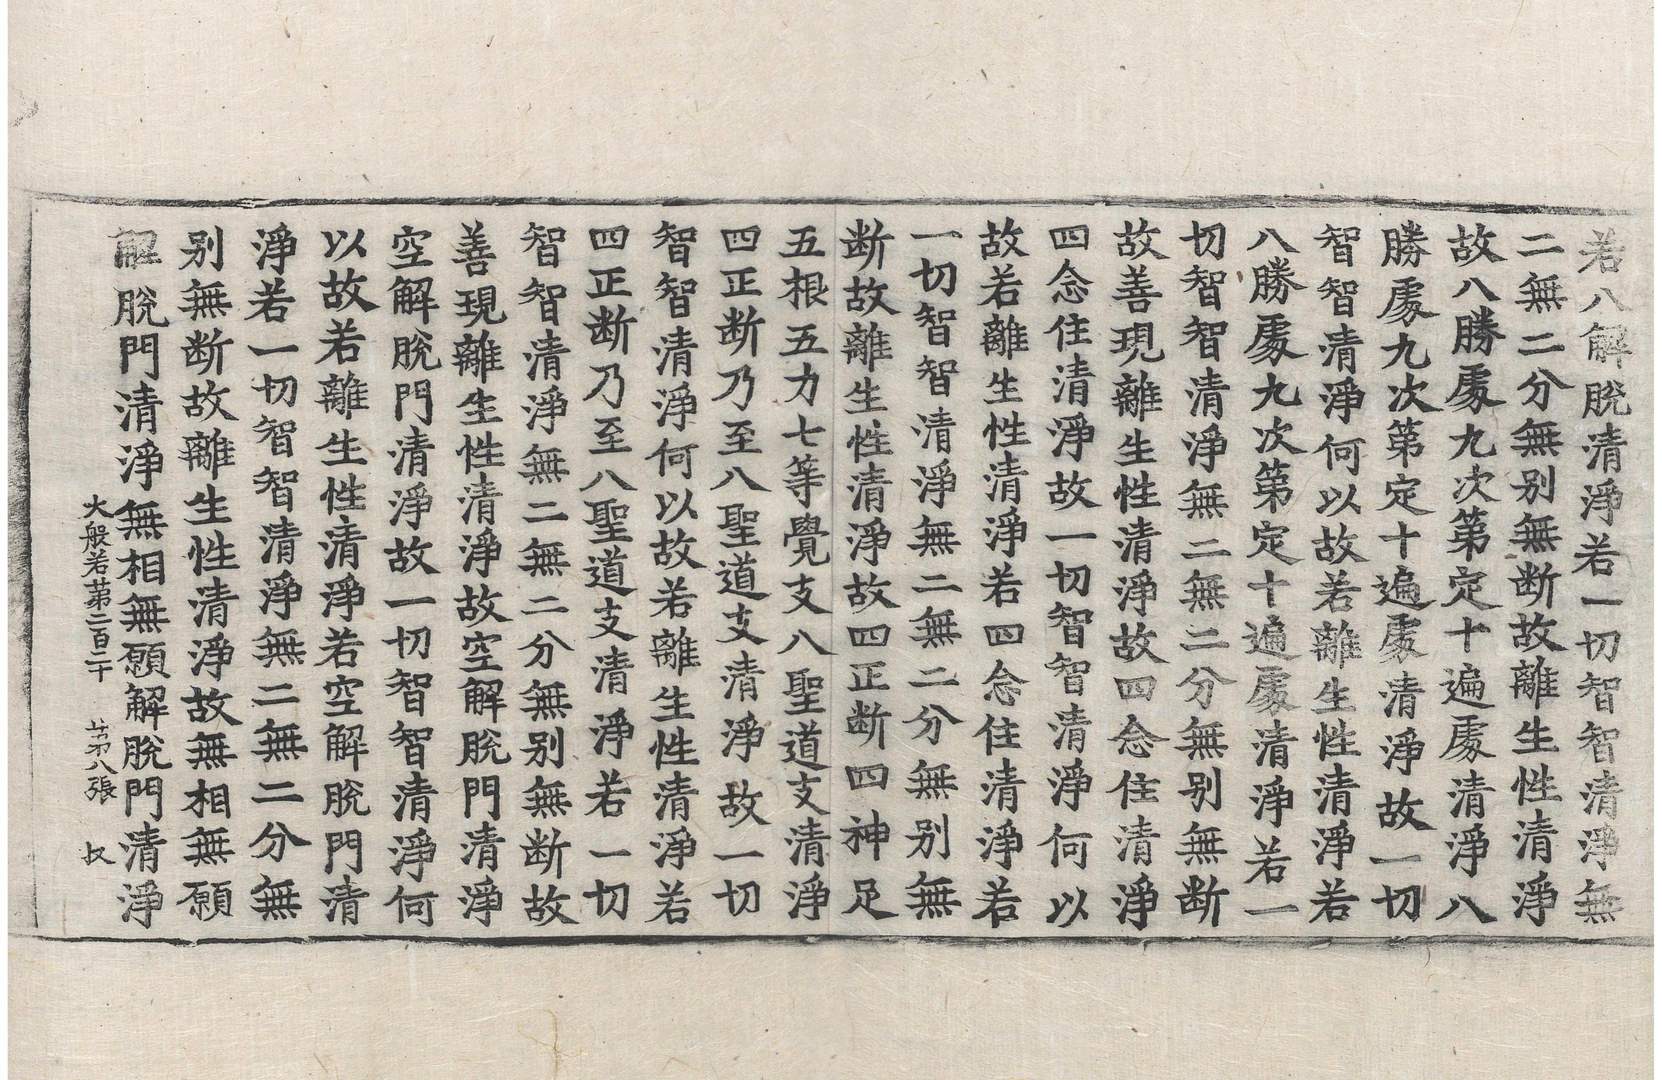 若八解脫清淨若一切智智清淨無
二無二分無别無断故離生性清淨
故八勝處九次第定十遍處清淨八
勝處九次第定十遍處清淨故一切
智智清淨何以故若離生性清淨若
八勝處九次第定十遍處清淨若一
切智智清淨無二無二分無别無断
故善現離生性清淨故四念住清淨
四念住清淨故一切智智清淨何以
故若離生性清淨若四念住清淨若
一切智智清淨無二無二分無别無
断故離生性清淨故四正断四神足
五根五力七等覺支八聖道支清淨
四正断乃至八聖道支清淨故一切
智智清淨何以故若離生性清淨若
四正断乃至八聖道支清淨若一切
智智清淨無二無二分無别無断故
善現離生性清淨故空解脫門清淨
空解脫門清淨故一切智智清淨何
以故若離生性清淨若空解脫門清
淨若一切智智清淨無二無二分無
别無断故離生性清淨故無相無願
解脫門清淨無相無願解脫門清淨
大般若苐二百二十 苐八張 叔